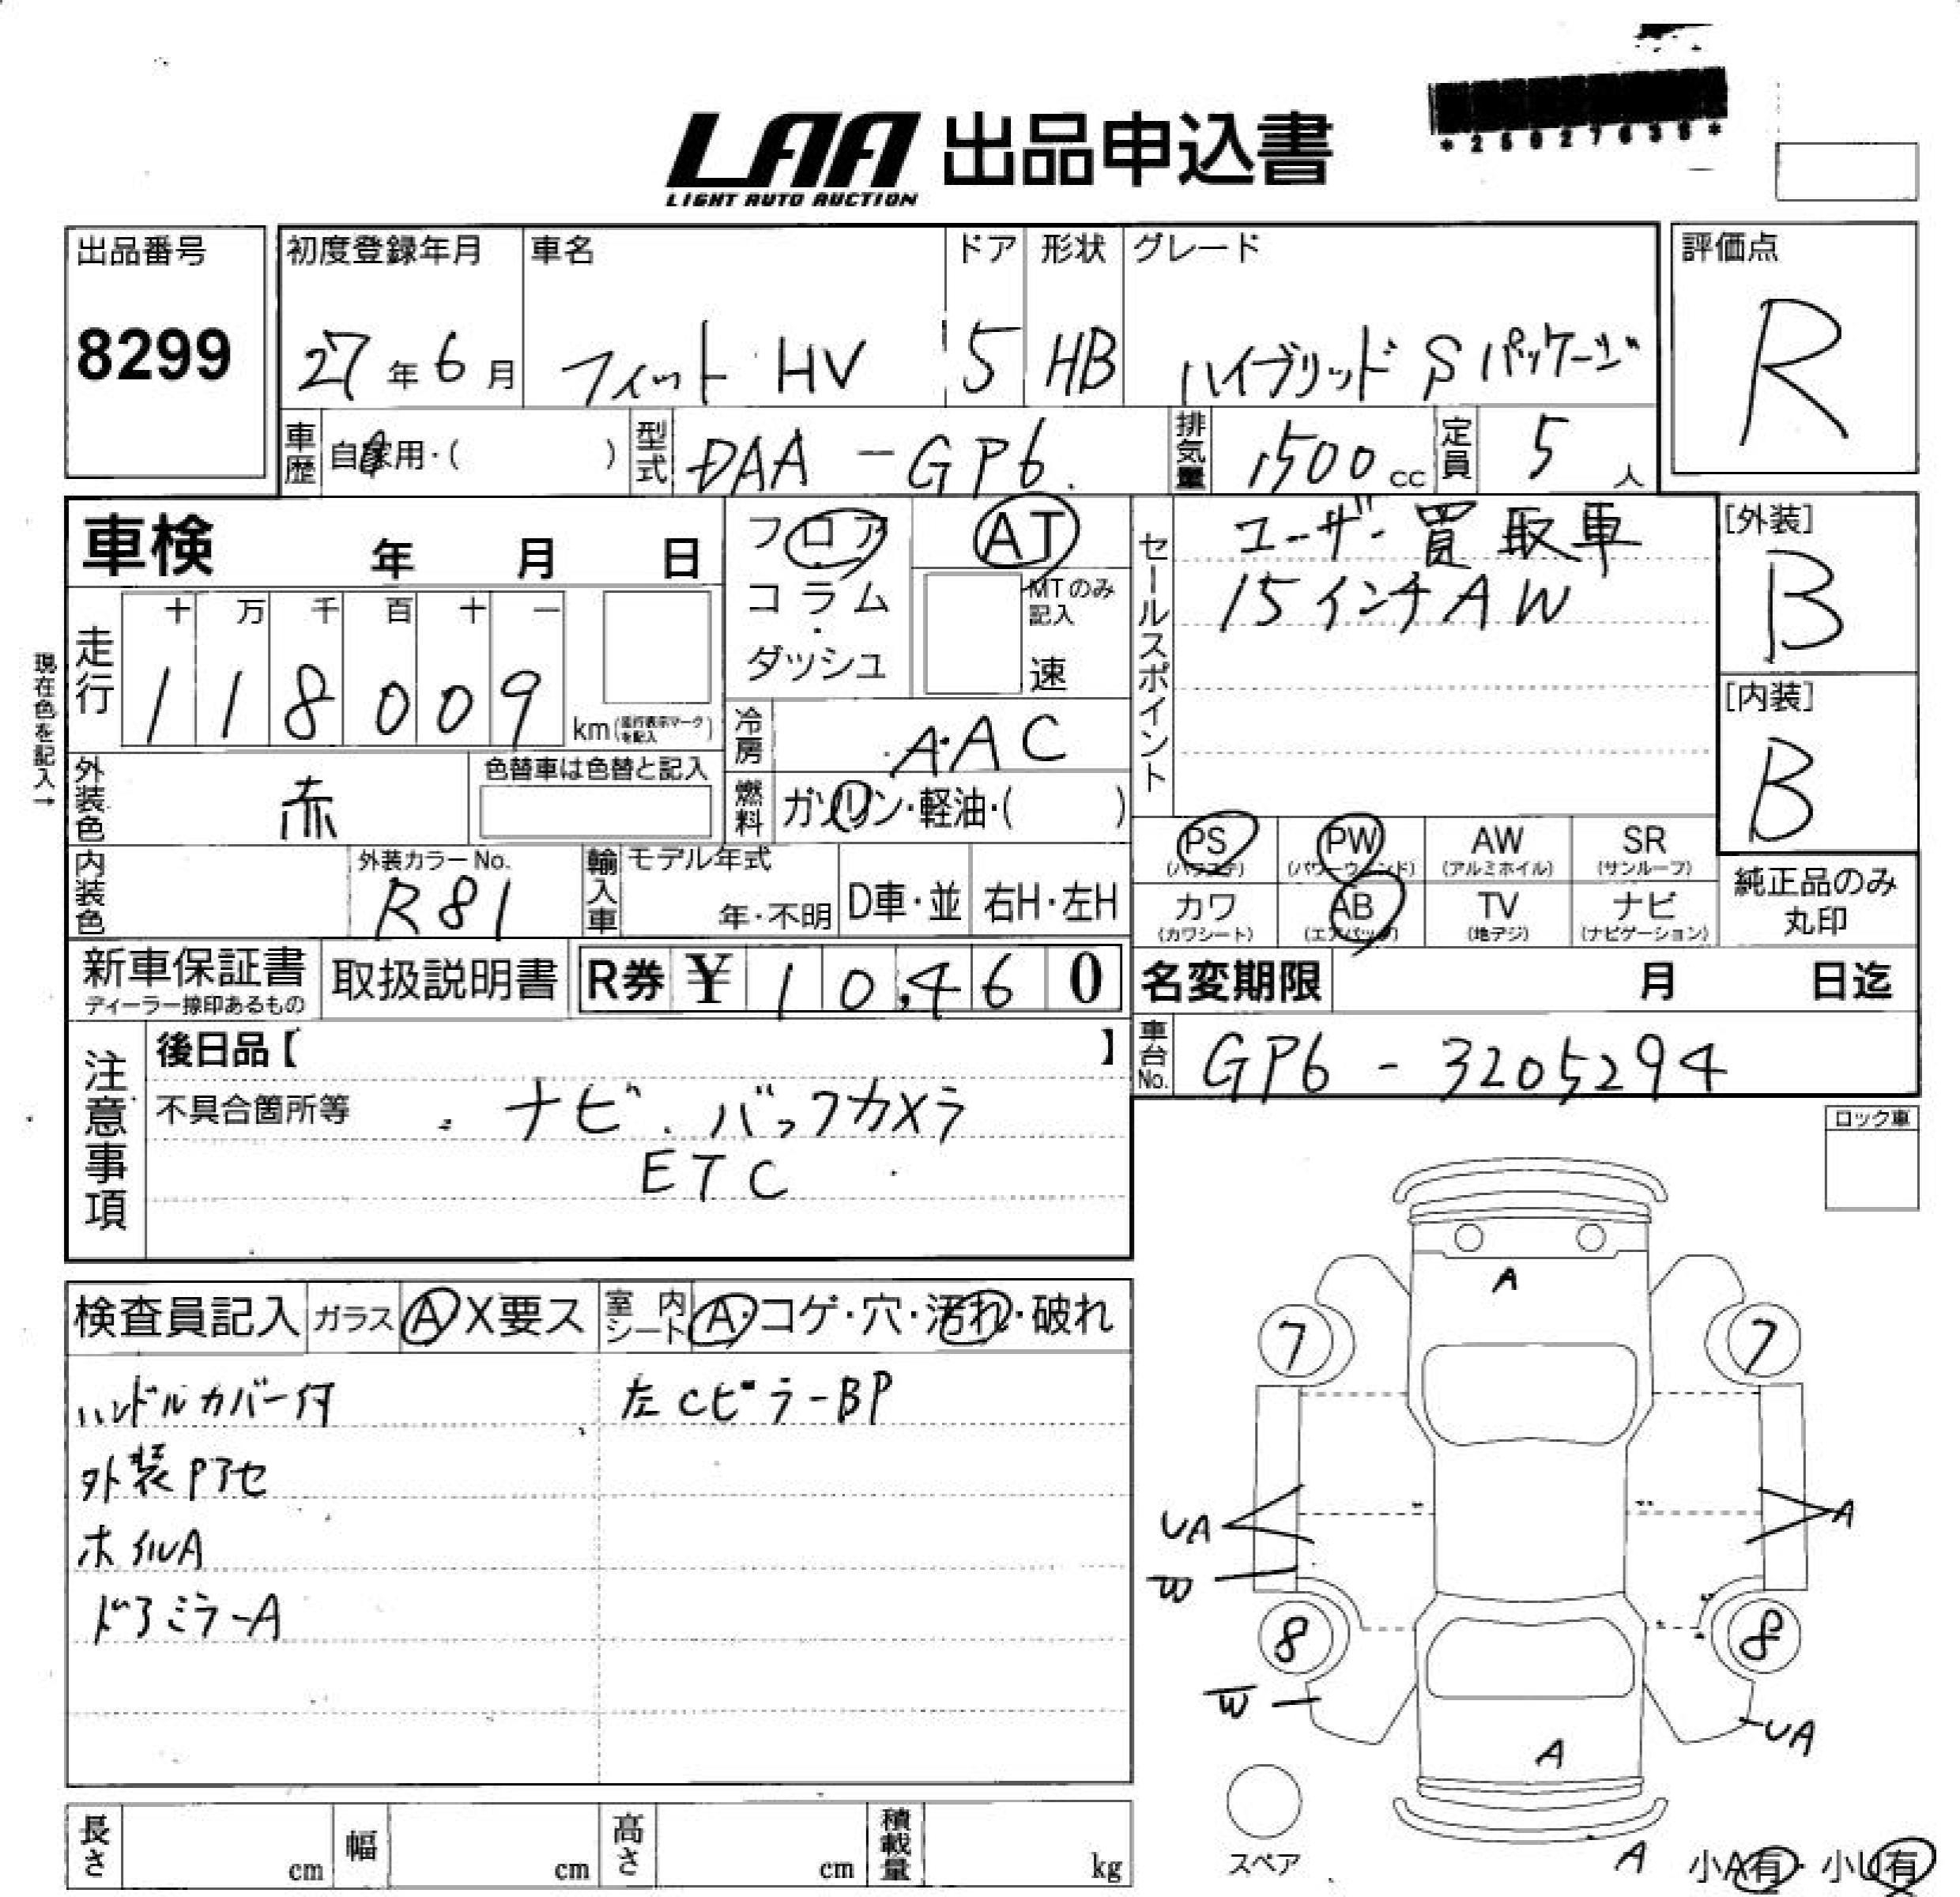 *25027636*
LAA 出品申込書
LIGHT AUTO AUCTION
出品番号 8299
初度登録年月 27年6月
車名 フィット HV
ドア 5
形状 HB
グレード ハイブリッド Sパッケージ
評価点 R
車歴 自家用・( )
型式 DAA-GP6
排気量 1500cc
定員 5人
車検 年 月 日
フロア・コラム・ダッシュ
AT
MTのみ記入 速
セールスポイント
ユーザー買取車
15インチAW
[外装] B
[内装] B
現在色を記入→
走行 十 万 千 百 十 一
118009 km(走行表示マークを記入)
冷房 AAC
燃料 ガソリン・軽油・( )
外装色 赤
色替車は色替と記入
内装色
外装カラーNo. R81
輸入車 モデル年式 年・不明 D車・並 右H・左H
PS (パワステ) PW (パワーウィンド) AW (アルミホイル) SR (サンルーフ)
カワ (カワシート) AB (エアバッグ) TV (地デジ) ナビ (ナビゲーション)
純正品のみ丸印
新車保証書 ディーラー捺印あるもの
取扱説明書
R券 ¥ 10,460
名変期限 月 日迄
車台No. GP6-3205294
注意事項
後日品【 】
不具合箇所等 ナビ.バックカメラ
ETC
ロック車
検査員記入 ガラス A X要ス 室内シート A・コゲ・穴・汚れ・破れ
ハンドルカバー付 左CピラーBP
外装Pアセ
ホイルA
ドアミラーA
A
7 7
UA A
8 8
W UA
A
スペア
A 小A有・小U有
長さ cm 幅 cm 高さ cm 積載量 kg